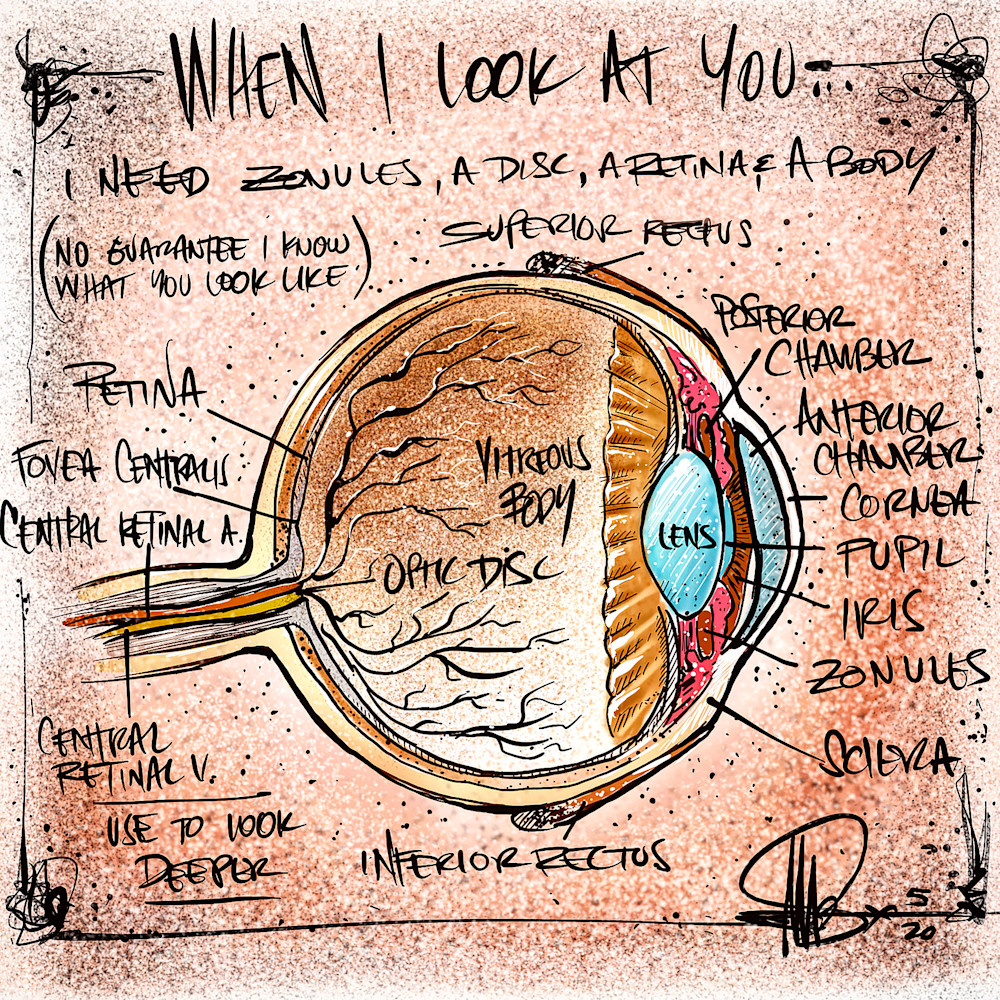 WHEN I LOOK AT YOU...
I NEED ZONULES, A DISC, A RETINA & A BODY
(NO GUARANTEE I KNOW
WHAT YOU LOOK LIKE)
SUPERIOR RECTUS
POSTERIOR
CHAMBER
RETINA
ANTERIOR
CHAMBER
FOVEA CENTRALIS
VITREOUS
BODY
CORNEA
CENTRAL RETINAL A.
LENS
PUPIL
OPTIC DISC
IRIS
ZONULES
CENTRAL
RETINAL V.
SCLERA
USE TO LOOK
DEEPER
INFERIOR RECTUS
5
20